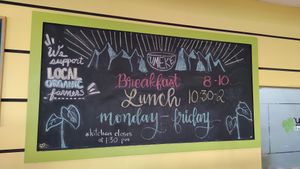 We
support
LOCAL
ORGANIC
farmers
UMEKE
Breakfast 8-10
Lunch 10:30-2
monday-friday
*kitchen closes
at 1:30 pm